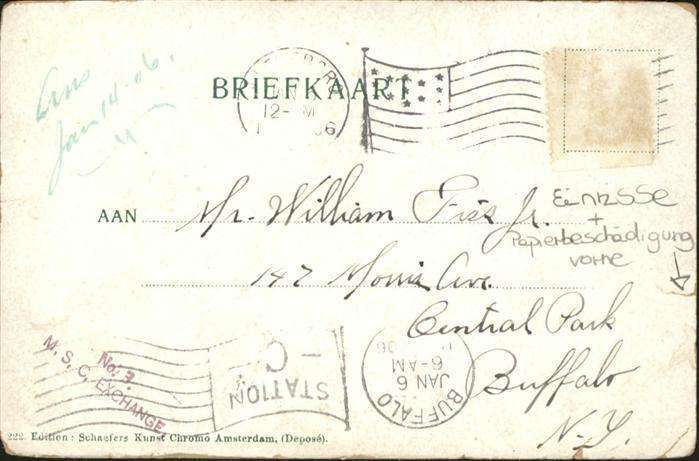 Ans
Jan 14-06.
BRIEFKAART
12- M
06
AAN Mr. William Fiss Jr.
147 Morris Ave.
Central Park
Buffalo
N.Y.
Einrisse
+
Papierbeschädigung
vorne
No. 3.
M. S. C. EXCHANGE.
STATION
C
BUFFALO
JAN 6
6-AM
06
222. Edition: Schaefers Kunst Chromo Amsterdam, (Deposé).